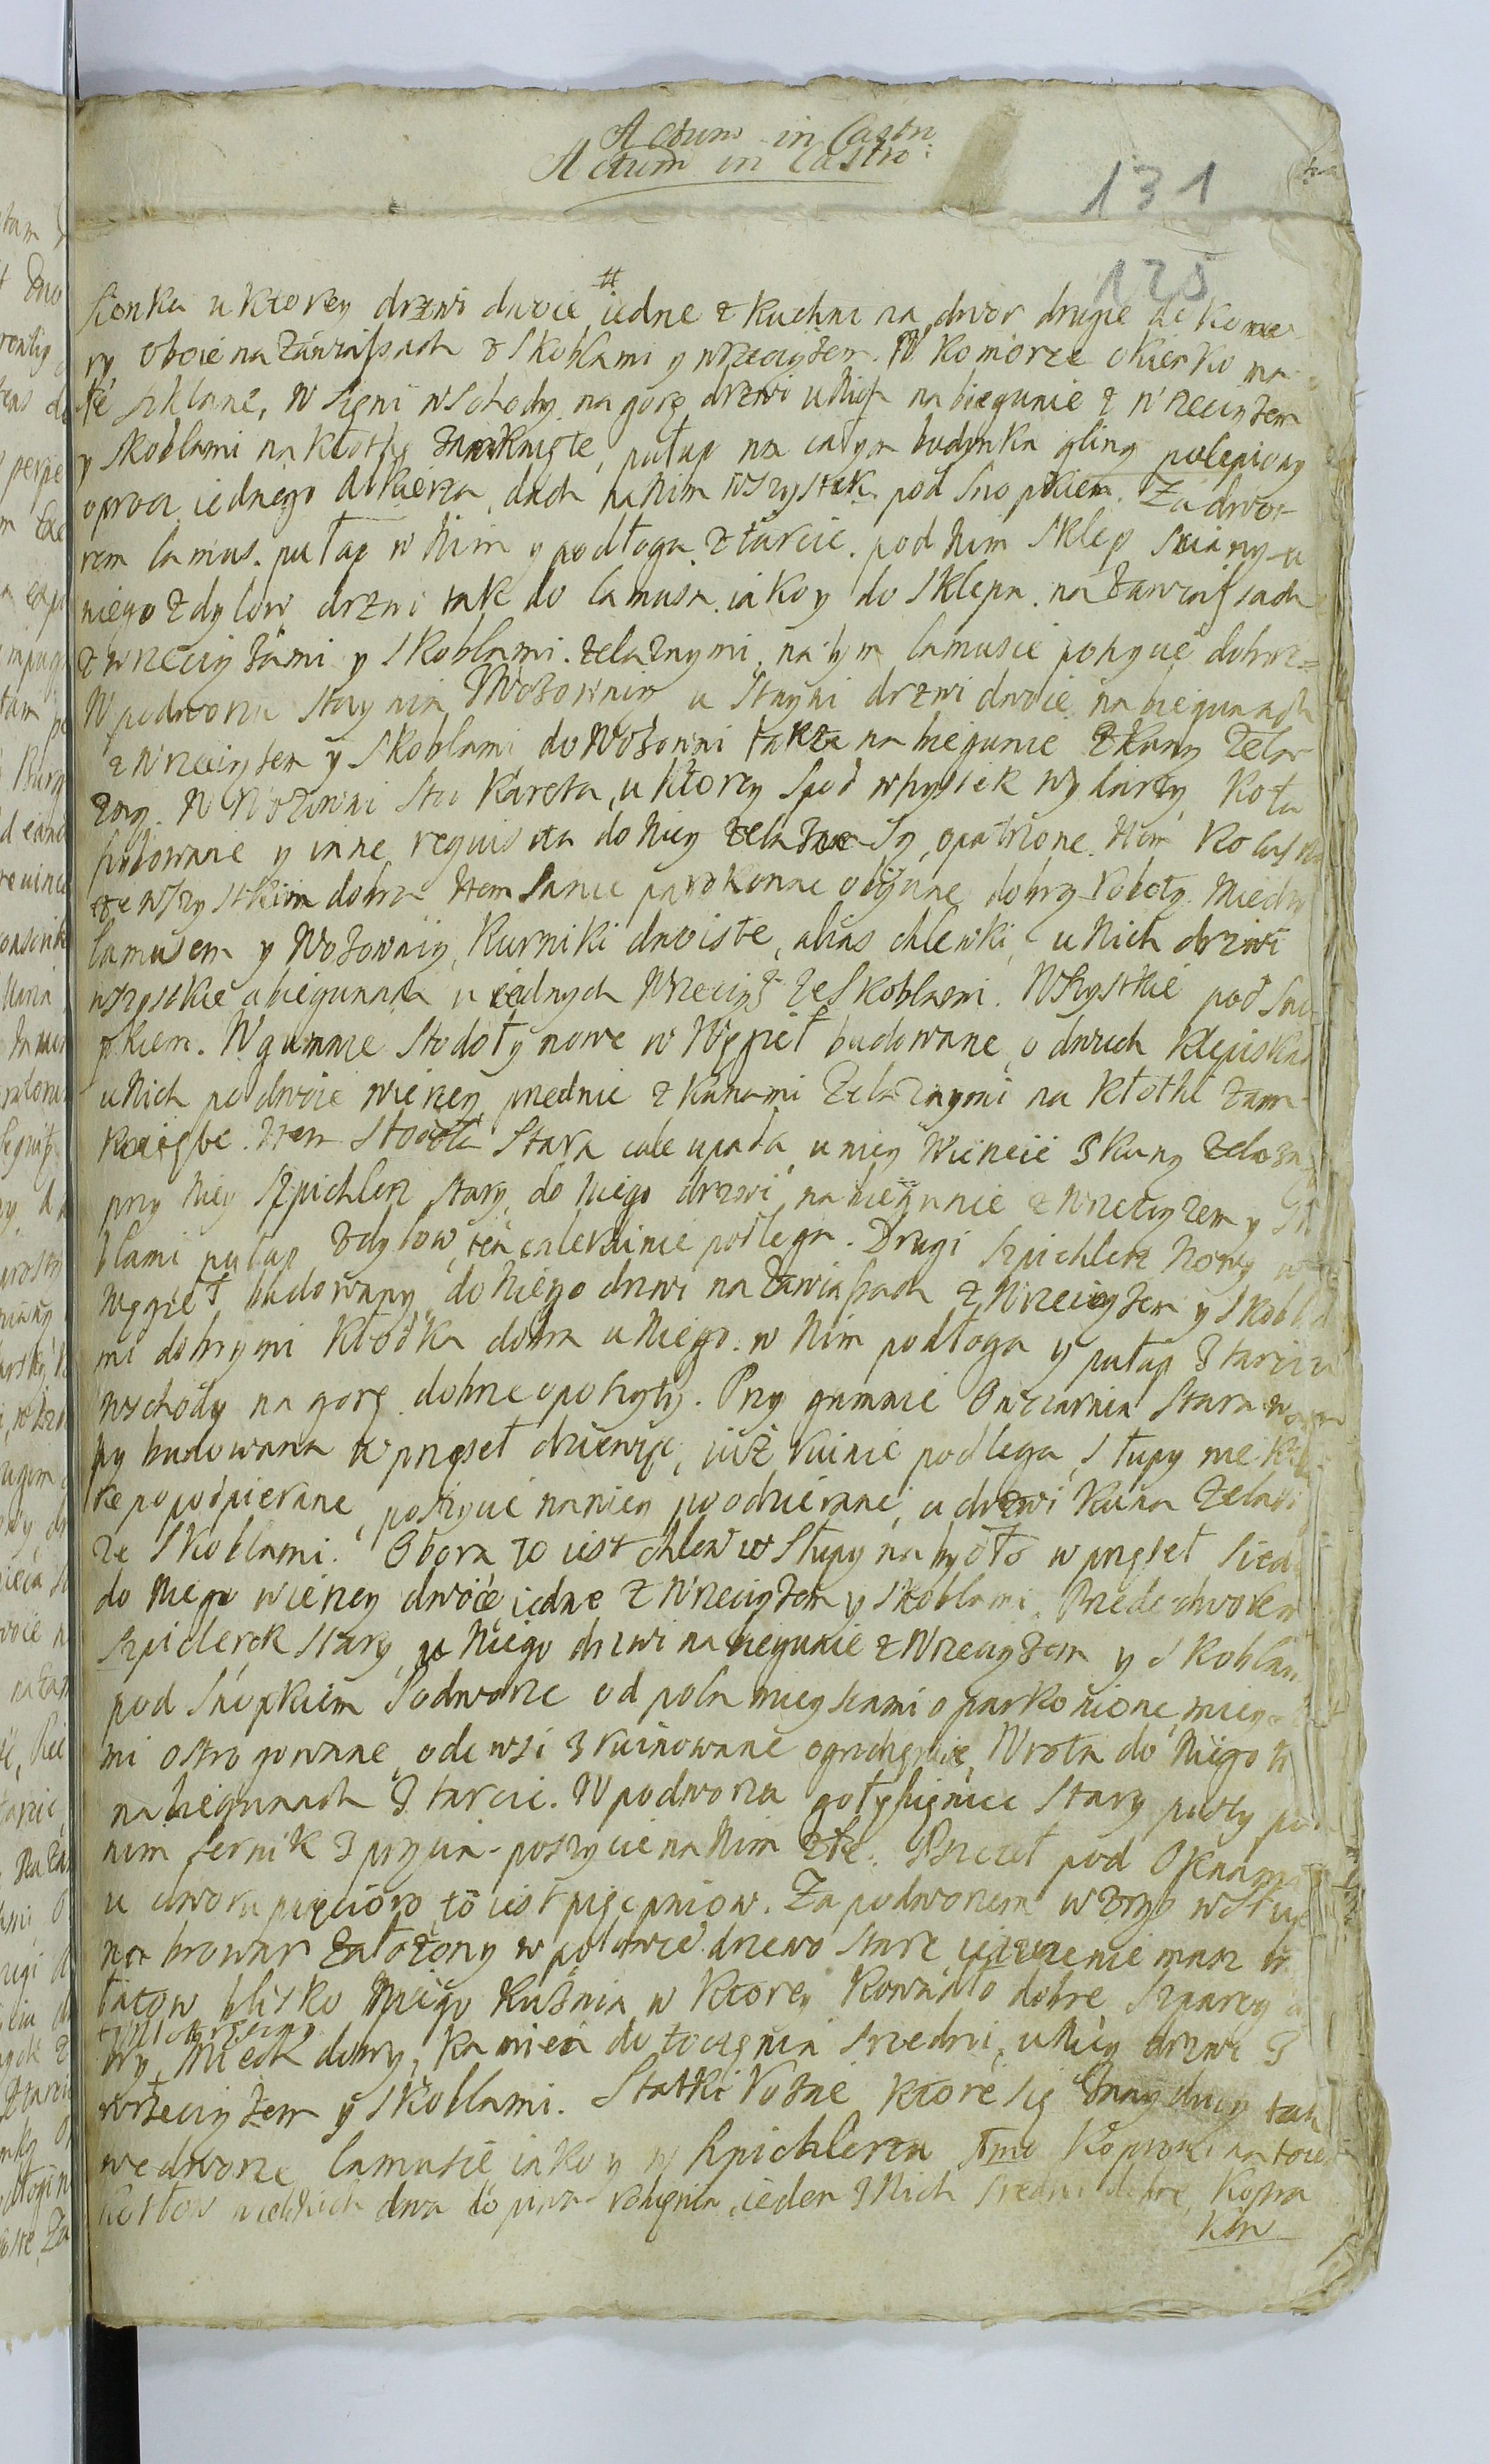 Actum in Castr
Actum in Castro
131
125
Sionka u ktorey drzwi dwoie # iedne z kuchni na dwor drugie do komo
ry oboie na zawiasach z skoblami y wrzeciążem. W komorze okienko ma
łe szklane, W sieni wschody na gorę drzwi u nich na biegunie z wrzeciążem
y skoblami na kłotkę zamknięte, pułap na całym budynku gliną polepiony
oprocz iednego alkierza, dach na nim wszystek pod snopkiem. Za dwo
rem lamus. pułap w nim y podłoga z tarcic. pod nim sklep sciany u
niego z dylow drzwi tak do lamusa iako y do sklepu na zawiasach
z wrzeciążami y skoblami żelaznymi, na tym lamusie pokrycie dobre
W podworzu staynia Wozownia u stayni drzwi dwoie na biegunach
z wrzeciążem y skoblami, do Wozowni także na biegunie z kuną żela
zną. W Wozowni stoi kareta, u ktorey spod wszystek wydarty, koła
szynowane y inne requisita do niey żelazne są opatrzone. Item kolaska
ze wszystkim dobra Item sanie parokonne obijane dobry roboty. Miedzy
lamusem y Wozownią, kurniki dwoiste, alias chlewki, u nich drzwi
wszystkie o biegunach u iednych wrzeciąż ze skoblami. Wszystkie pod sno
pkiem. W gumnie stodoły nowe w Węgieł budowane, o dwuch klepiskach
u nich po dwoie wierzey przednie z kunami żelaznymi na kłotki zam
knięte. Item stodoła stara całe upada u niey wierzeie z kuną żelazną
przy niey szpichlerz stary, do niego drzwi na biegunie z wrzeciążem y sko
blami pułap z dylow, ten całe ruinie podlega. Drugi szpichlerz nowy w
węgieł budowany, do niego drzwi na zawiasach z wrzeciążem y skobla
mi dobrymi kłodka dobra u niego. w nim podłoga y pułap z tarcic
wschody na gorę dobrze opokryty. Przy gumnie owczarnia stara w
py budowana w przęseł dziewięc, iuż ruinie podlega, słupy niekto
re popodpierane, poszycie na niey poodzierane, u drzwi kuna żelazna
ze skoblami. Obora to iest chlew w słupy na bydło w przęseł siedm
do niego wierzey dwoie, iedne z wrzeciążem y skoblami. Przede dworem
szpiclerek stary, u niego drzwi na biegunie z wrzeciążem y skoblami
pod snopkiem Podworze od pola mieyscami oparkonione, mieysca
mi ostrogowane, ode wsi zruinowane ogrodzenie, Wrota do niego
na biegunach z tarcic. W podworzu gołębieniec stary pusty pod
nim sernik z pręcia poszycie na nim złe. Pszczoł pod oknami
u dworu pięcioro, to iest pięc pniow. Za podworzem w słupy
na browar założony w połowie drzewo stare
blisko niego kuźnia w ktorey kowadło dobre szparogi
ry, Miech dobry, kamień do toczenia srzedni, u niey drzwi z
wrzeciążem y skoblami. Statki rożne ktore się znayduią tak
we dworze lamusie iako y w spichlerzu 1mo
kotłow wielkich dwa do piwa robienia, ieden z nich sredni dobre, kopra
kow